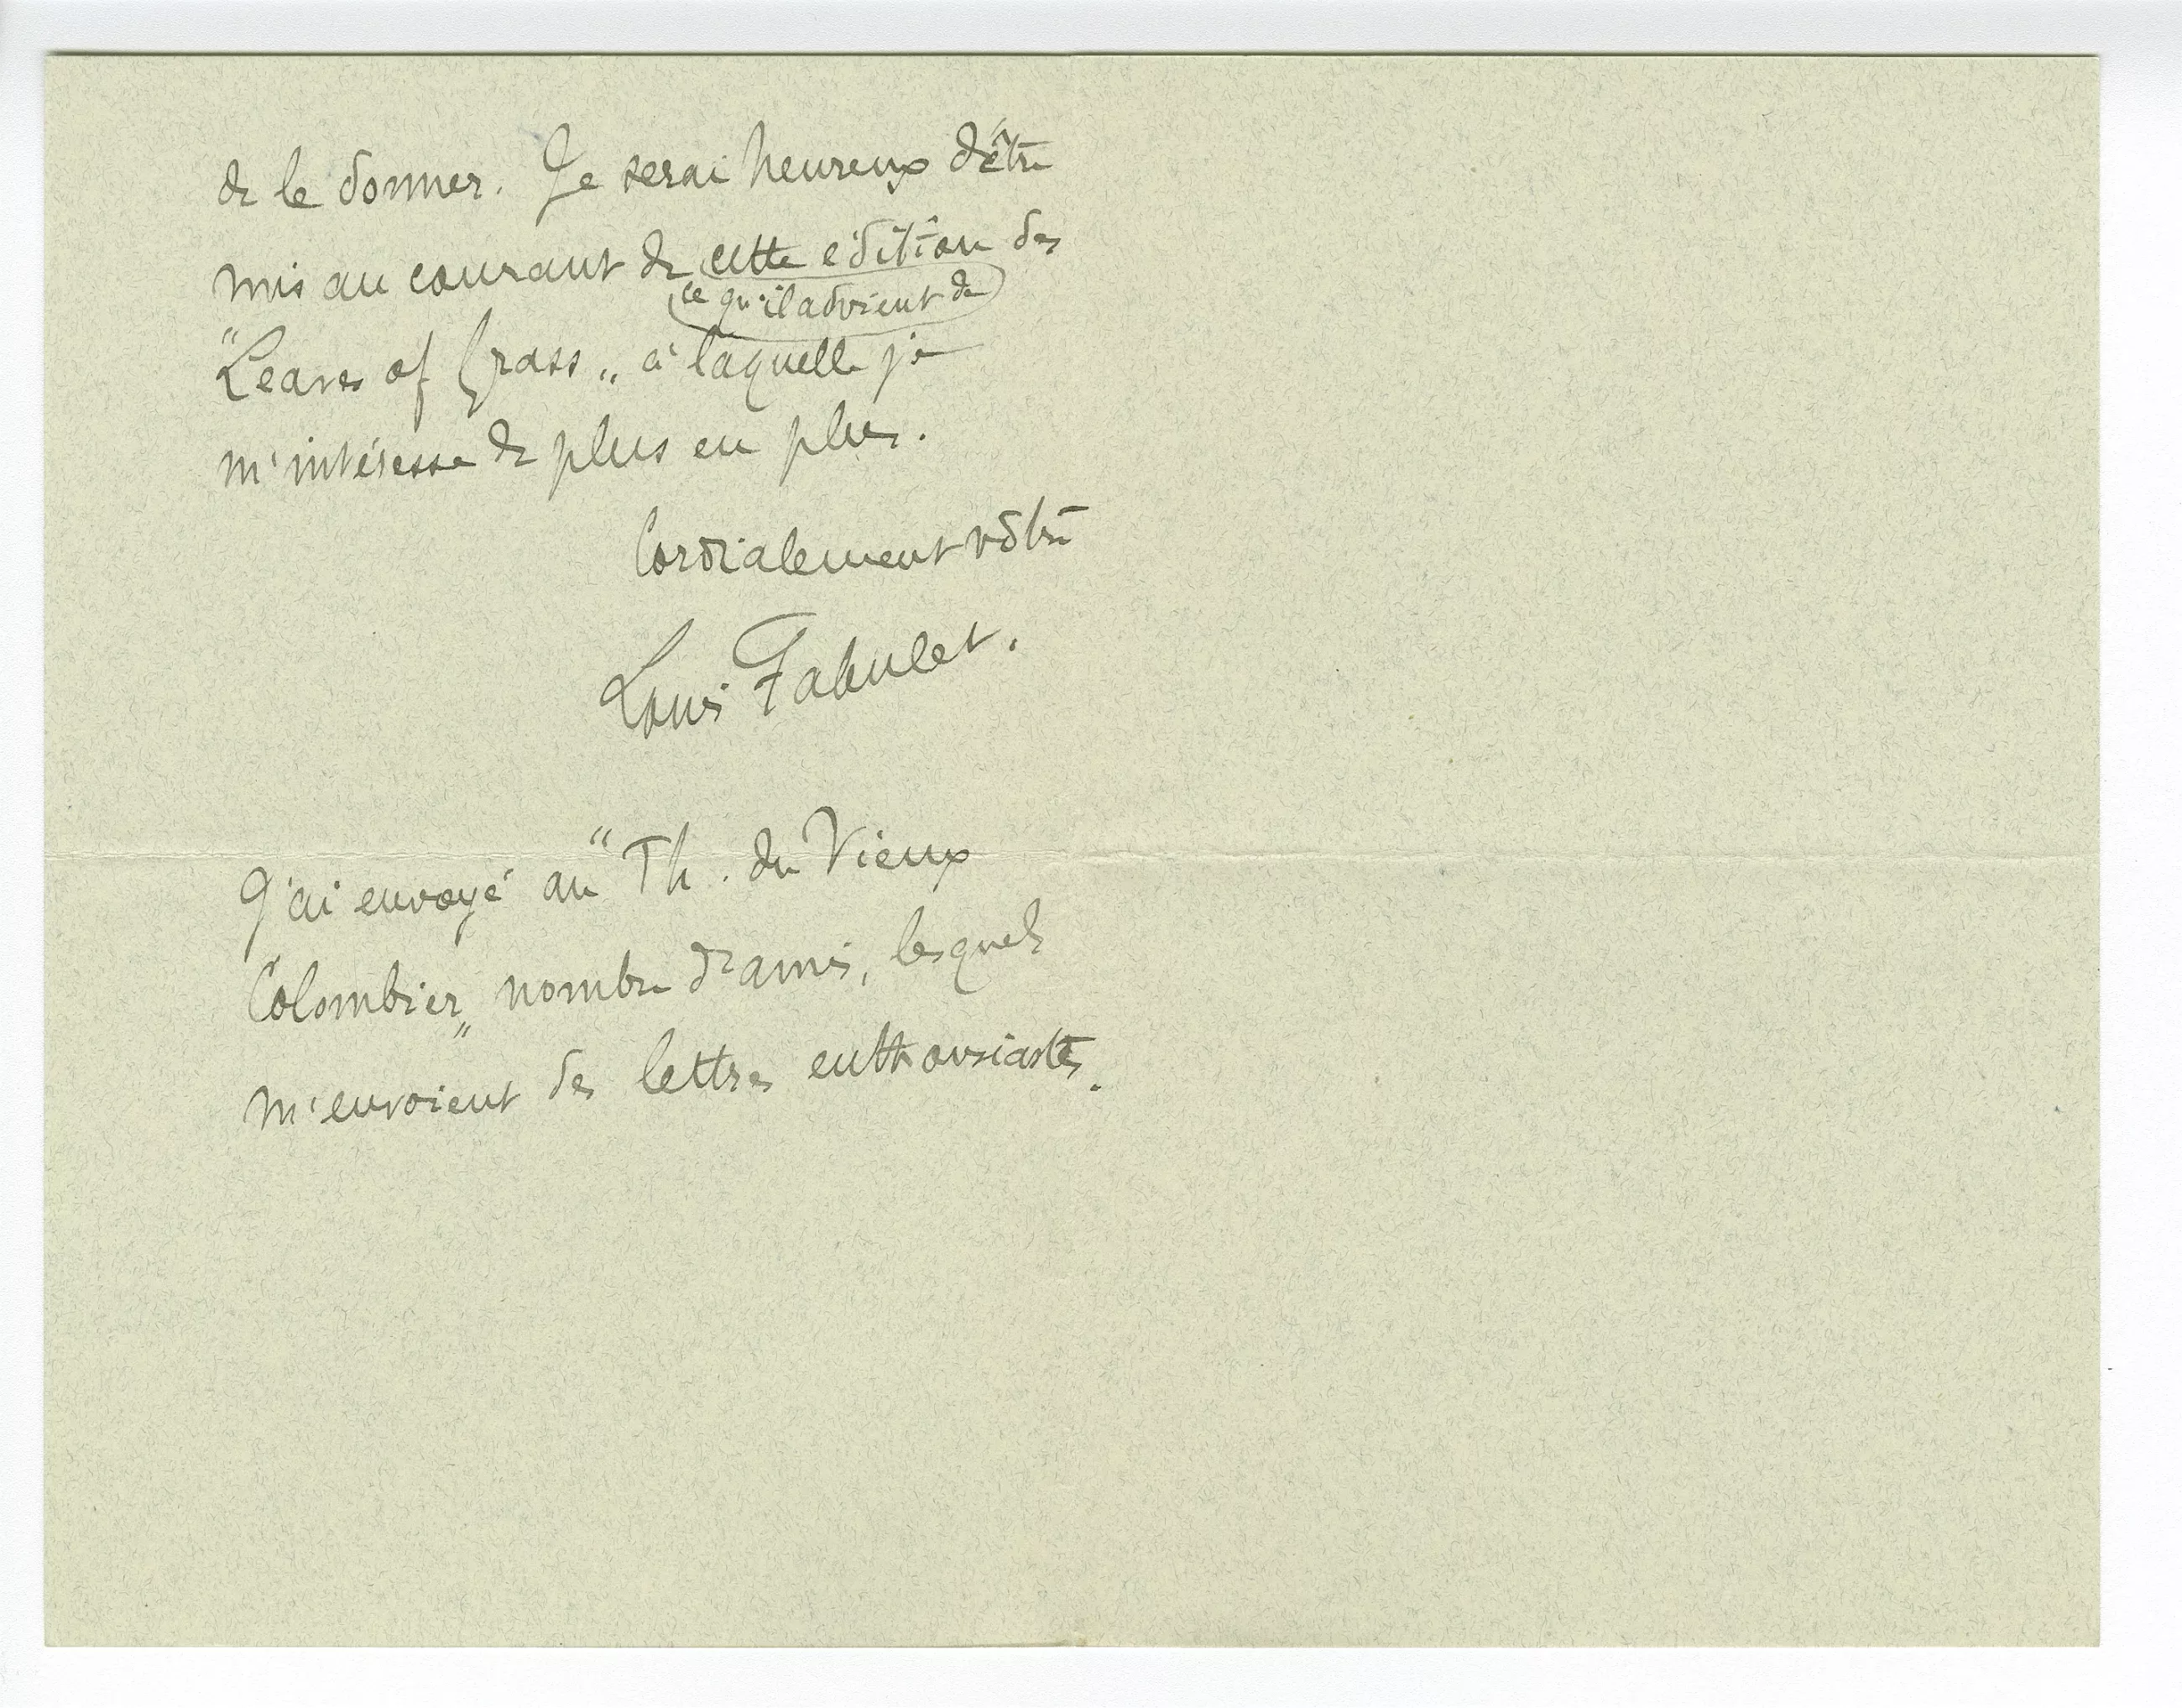 de le donner. Je serai heureux d'être
mis au courant de cette édition des
(ce qu'il advient de)
"Leaves of Grass" à laquelle je
m'intéresse de plus en plus.
Cordialement vôtre
Louis Fabulet.
J'ai envoyé au "Th. du Vieux
Colombier" nombre d'amis, lesquels
m'envoient des lettres enthousiastes.